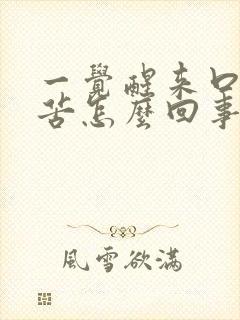 一覺醒來口
苦怎麼回事
風雪欲滿